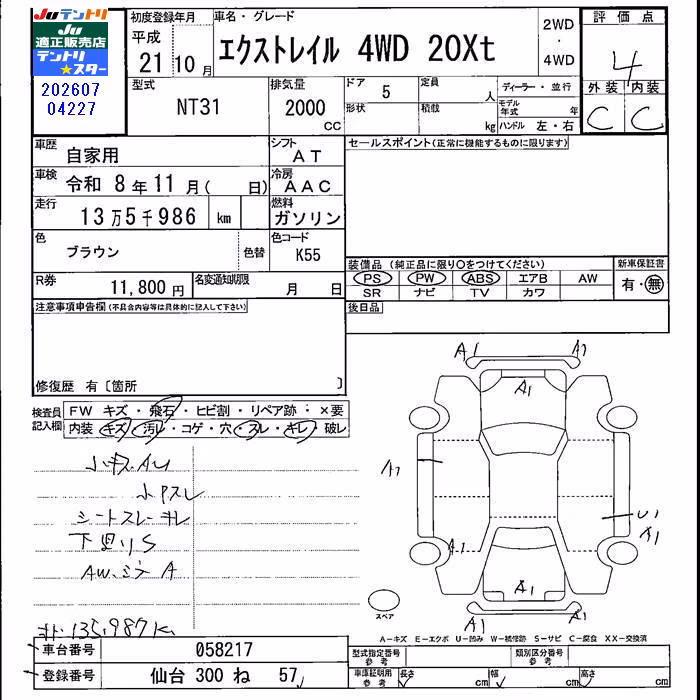 Juテントリ
Ju
適正販売店
テントリ
★スター
202607
04227
初度登録年月
平成
21 10月
車名・グレード
エクストレイル 4WD 20Xt
2WD
・
4WD
評価点
4
外装 内装
C C
型式
NT31
排気量
2000
CC
ドア 5
形状
定員 人
積載 kg
ディーラー・並行
モデル年式 年
ハンドル 左・右
車歴 自家用
シフト AT
セールスポイント(正常に機能するものに限ります)
車検 令和 8年11月( 日)
冷房 AAC
走行 13万5千986 km
燃料 ガソリン
色 ブラウン 色替
色コード K55
装備品 (純正品に限り○をつけてください)
新車保証書
PS PW ABS エアB AW
有・無
SR ナビ TV カワ
R券 11,800円
名変通知期限 月 日
後日品
注意事項申告欄(不具合内容等は具体的に記入して下さい)
修復歴 有〔箇所 〕
検査員記入欄
FW キズ・飛石・ヒビ割・リペア跡:×要
内装 キズ・汚レ・コゲ・穴・スレ・キレ・破レ
小キズAU
シートスレ キレ
下廻りS
A1 A1
A1
A1
U1
A1
A1
A1
A1 A1
スペア
135,987K
A-キズ E-エクボ U-凹み W-補修跡 S-サビ C-腐食 XX-交換済
車台番号 058217
登録番号 仙台 300 ね 57
型式指定番号 参考
類別区分番号 参考
車庫証明用 参考
長さ cm
幅 cm
高さ cm